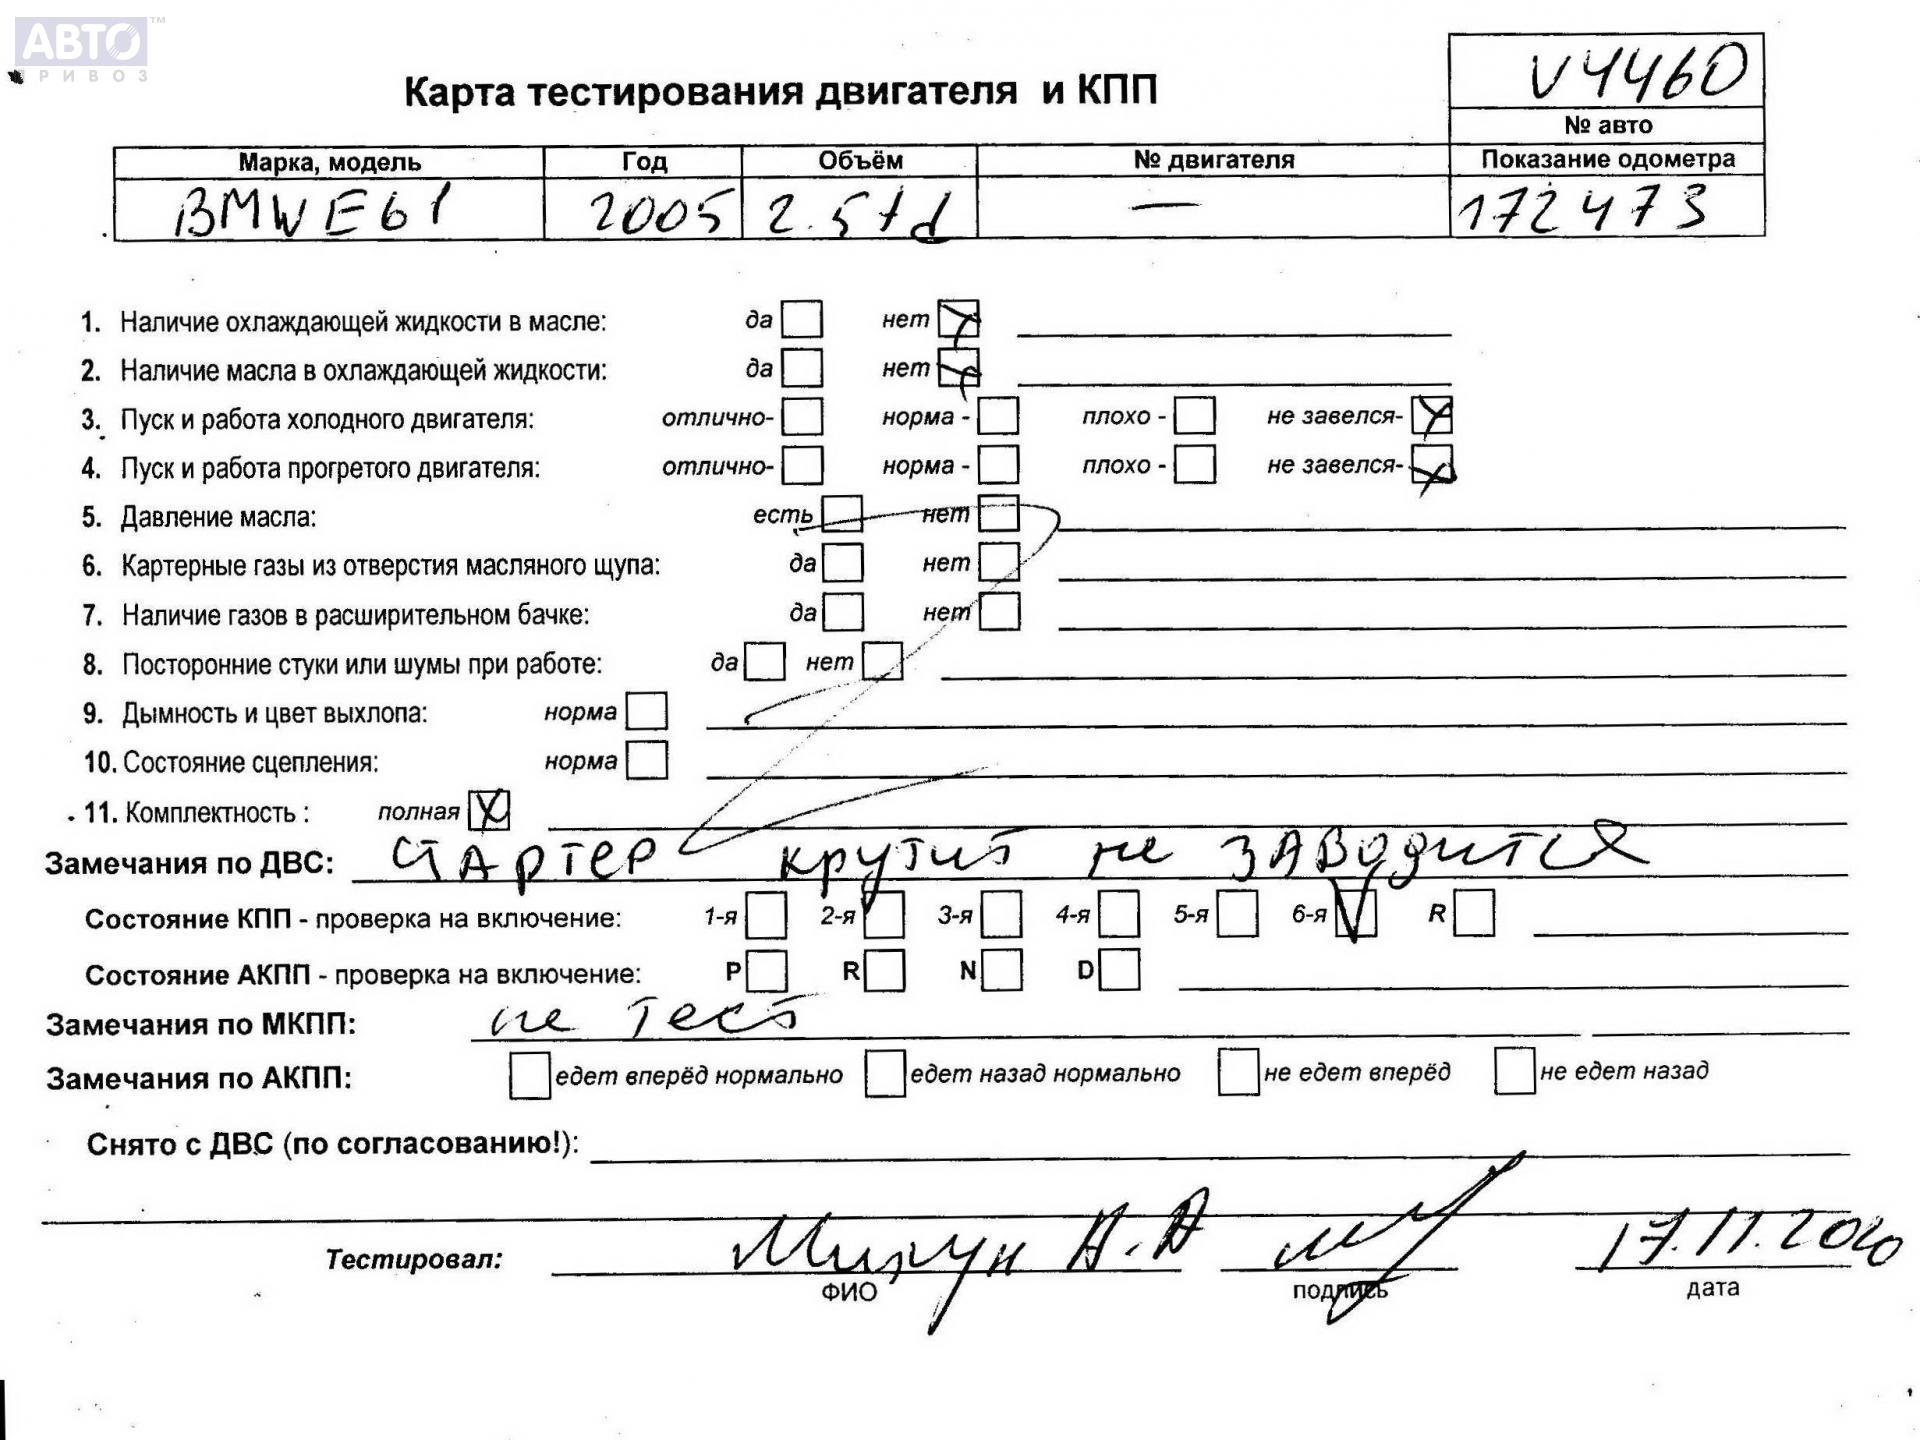 АВТО ™
ПРИВОЗ
V4460
Карта тестирования двигателя и КПП
№ авто
Марка, модель Год Объём № двигателя Показание одометра
BMW E61 2005 2.5td — 172473
1. Наличие охлаждающей жидкости в масле: да нет
2. Наличие масла в охлаждающей жидкости: да нет
3. Пуск и работа холодного двигателя: отлично- норма - плохо - не завелся-
4. Пуск и работа прогретого двигателя: отлично- норма - плохо - не завелся-
5. Давление масла: есть нет
6. Картерные газы из отверстия масляного щупа: да нет
7. Наличие газов в расширительном бачке: да нет
8. Посторонние стуки или шумы при работе: да нет
9. Дымность и цвет выхлопа: норма
10. Состояние сцепления: норма
11. Комплектность : полная
Замечания по ДВС: стартер крутит не заводится
Состояние КПП - проверка на включение: 1-я 2-я 3-я 4-я 5-я 6-я R
Состояние АКПП - проверка на включение: P R N D
Замечания по МКПП: не тест
Замечания по АКПП: едет вперёд нормально едет назад нормально не едет вперёд не едет назад
Снято с ДВС (по согласованию!):
Тестировал: А.А 17.11.2020
ФИО подпись дата